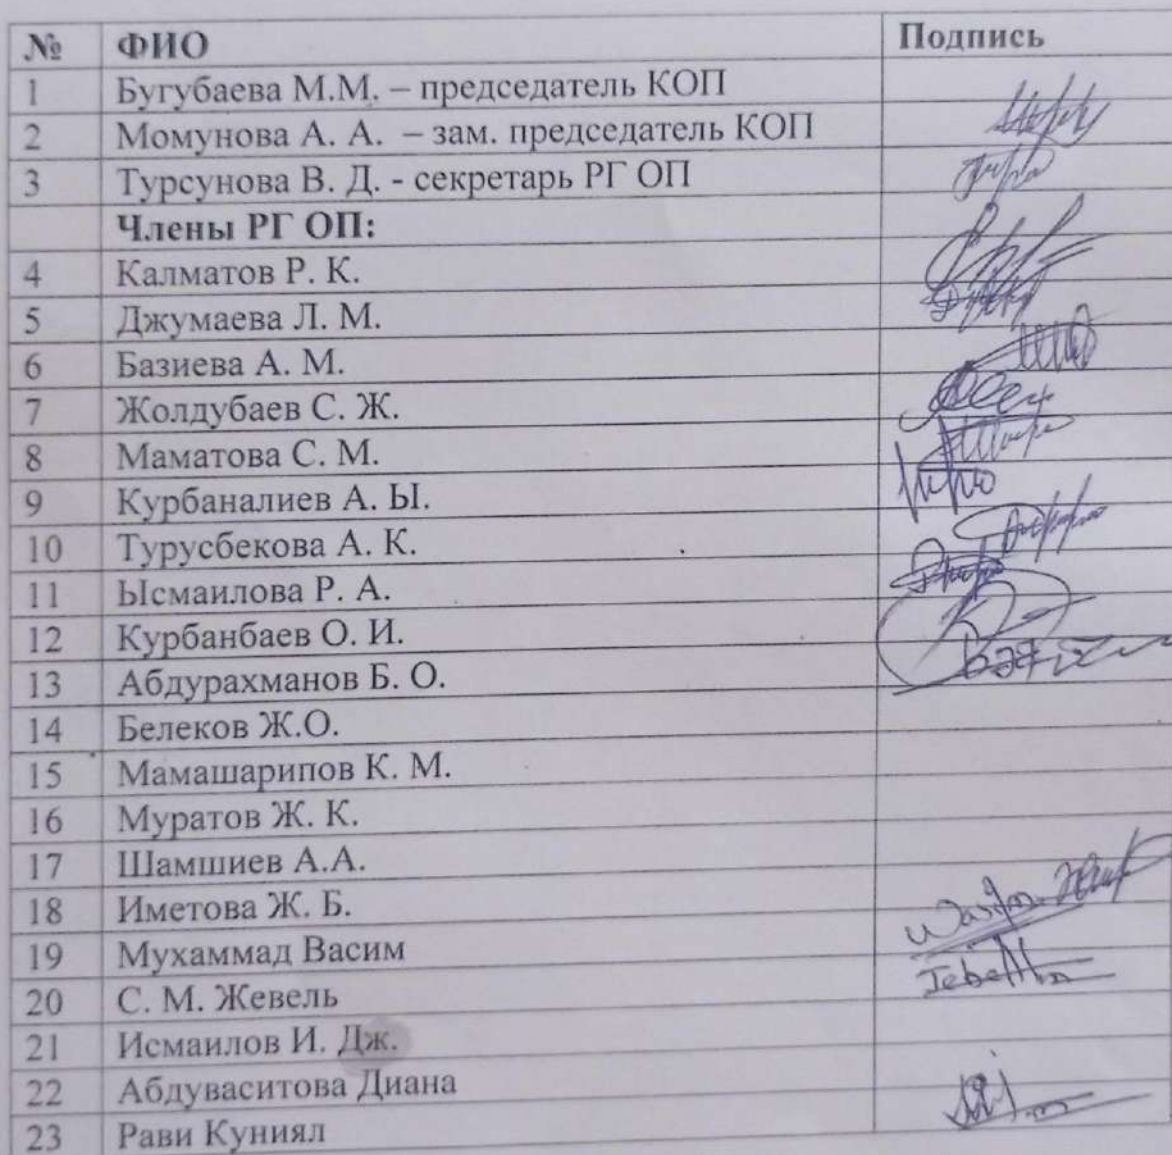 № ФИО Подпись
1 Бугубаева М.М. – председатель КОП
2 Момунова А. А. – зам. председатель КОП
3 Турсунова В. Д. - секретарь РГ ОП
Члены РГ ОП:
4 Калматов Р. К.
5 Джумаева Л. М.
6 Базиева А. М.
7 Жолдубаев С. Ж.
8 Маматова С. М.
9 Курбаналиев А. Ы.
10 Турусбекова А. К.
11 Ысмаилова Р. А.
12 Курбанбаев О. И.
13 Абдурахманов Б. О.
14 Белеков Ж.О.
15 Мамашарипов К. М.
16 Муратов Ж. К.
17 Шамшиев А.А.
18 Иметова Ж. Б.
19 Мухаммад Васим
20 С. М. Жевель
21 Исмаилов И. Дж.
22 Абдуваситова Диана
23 Рави Куниял